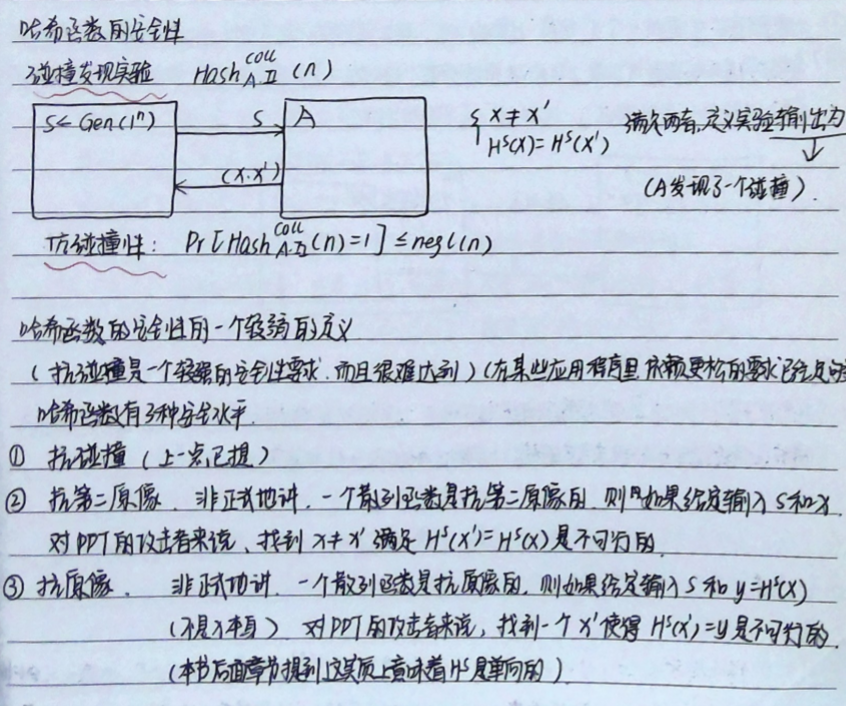 哈希函数的安全性
碰撞发现实验 Hash^{coll}_{A.Π}(n)
S← Gen(1ⁿ)
S
A
(x.x')
{ x≠x'
H^s(x)=H^s(x')
满足两者,定义实验输出为
(A发现了一个碰撞).
抗碰撞性: Pr[Hash^{coll}_{A.Π}(n)=1]≤negl(n)
哈希函数的安全性的一个较弱的定义
(抗碰撞是一个较强的安全性要求.而且很难达到)(在某些应用程序里.依赖更松的要求已经足够
哈希函数有3种安全水平.
① 抗碰撞(上一点已提)
② 抗第二原像. 非正式地讲.一个散列函数是抗第二原像的.则如果给定输入S和x.
对PPT的攻击者来说、找到 x≠x' 满足 H^s(x')=H^s(x)是不可行的.
③ 抗原像. 非正式地讲.一个散列函数是抗原像的.则如果给定输入S和 y=H^s(x)
(不是x本身) 对PPT的攻击者来说,找到一个x'使得 H^s(x')=y是不可行的.
(本书后面章节提到这实质上意味着H^s是单向的)